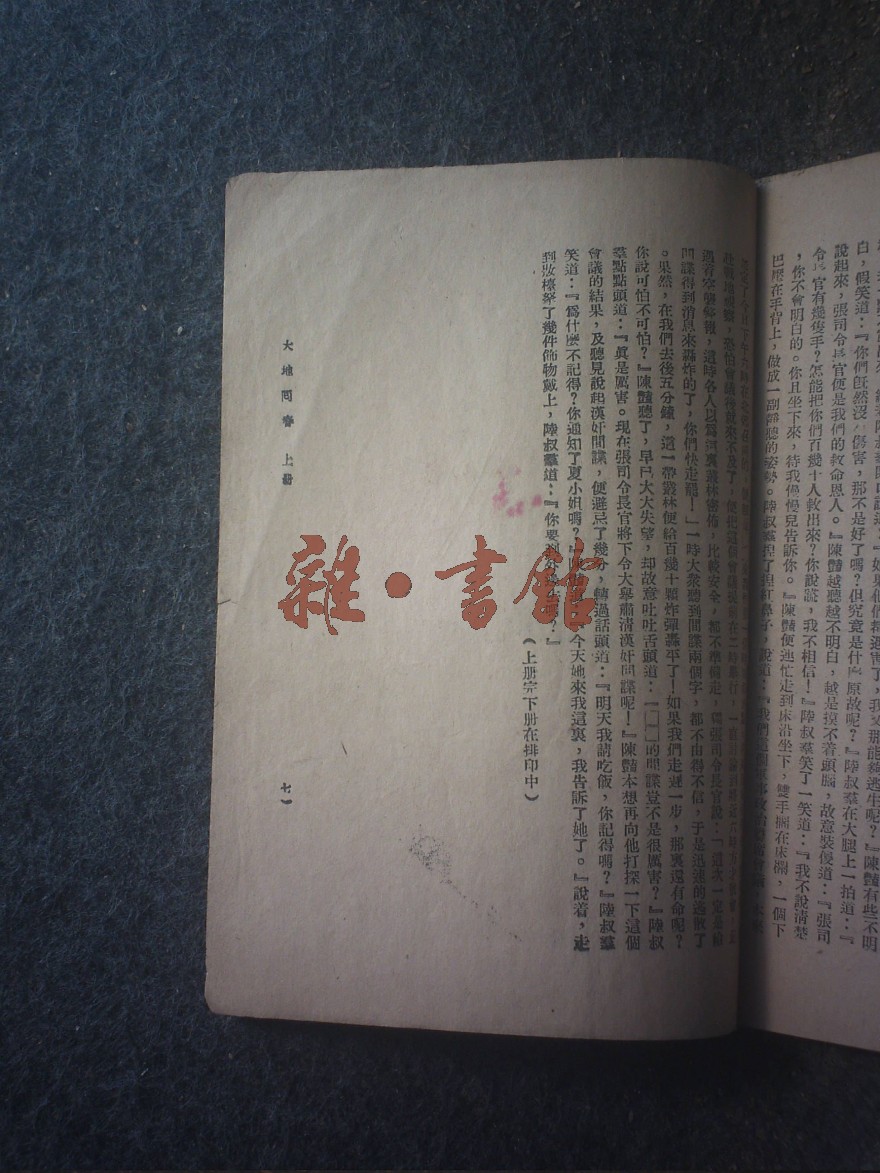 白，假笑道：『你們旣然沒有傷害，那不是好了嗎？但究竟是什麼原故呢？』陸叔羣在大腿上一拍道：『
說起來，張司令長官便是我們的救命恩人。』陳豔越聽越不明白，越是摸不着頭腦，故意裝傻道：『張司
令長官有幾隻手？怎能把你們百幾十人救出來？你說謊，我不相信！』陸叔羣笑了一笑道：『我不說淸楚
，你不會明白的。你且坐下來，待我慢慢兒告訴你。』陳豔便連忙走到床沿坐下，雙手擱在床欄，一個下
巴壓在手背上，做成一副靜聽的姿勢。陸叔羣捏了捏紅鼻子，說道：『我們
過着空襲警報，這時各人以爲河裏叢林密佈，比較安全，都不準備走，但張司令長官說：『這次一定是給
間諜得到消息來轟炸的了，你們快走罷！』一時大衆聽到間諜兩個字，都不由得不信，于是迅速的逃散了
。果然，在我們去後五分鐘，這一帶叢林便給百幾十顆炸彈轟平了！如果我們走遲一步，那裏還有命呢？
你說可怕不可怕？』陳豔聽了，早已大大失望，却故意吐吐舌頭道：『□□的間諜豈不是很厲害？』陸叔
羣點點頭道：『眞是厲害。現在張司令長官將下令大舉肅清漢奸間諜呢！』陳豔本想再向他打探一下這個
會議的結果，及聽見說起漢奸間諜，便避忌了幾分，轉過話頭道：『明天我請吃飯，你記得嗎？』陸叔羣
笑道：『爲什麼不記得？你通知了夏小姐嗎？』今天她來我這裏，我告訴了她了。』說着，走
到妝檯拏了幾件飾物戴上，陸叔羣道：『你要到外
（上册完下册在排印中）
大地回春 上册
七一
雜·書館